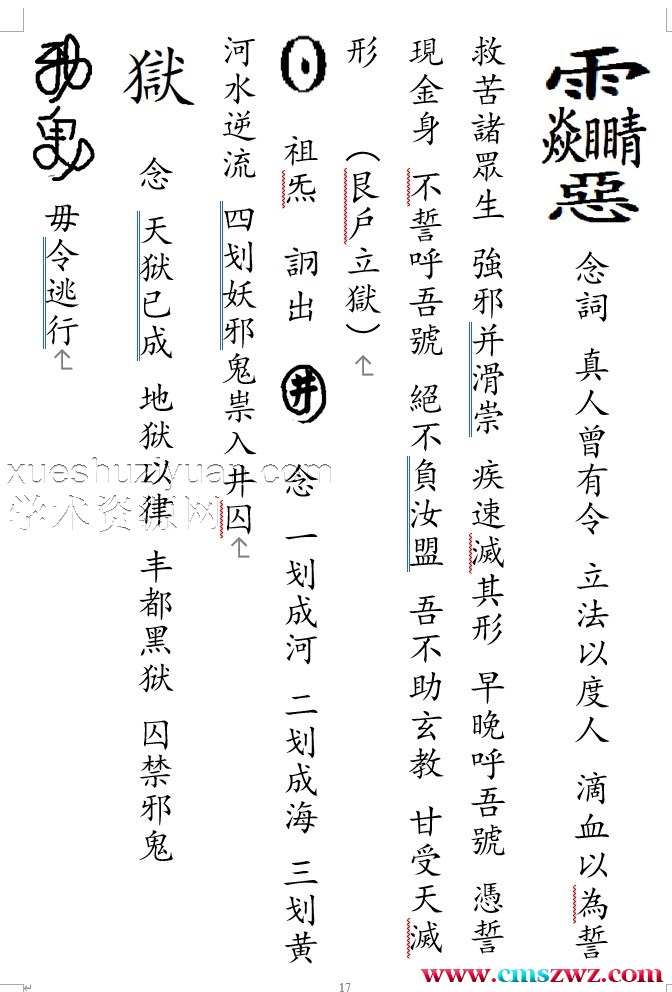 念詞 真人曾有令 立法以度人 滴血以為誓
救苦諸眾生 強邪并滑崇 疾速滅其形 早晚呼吾號 憑誓
現金身 不誓呼吾號 絕不負汝盟 吾不助玄教 甘受天滅
形 （艮戶立獄）
祖炁 詗出 井 念 一划成河 二划成海 三划黃
河水逆流 四划妖邪鬼祟入井囚
獄 念 天獄已成 地獄以律 丰都黑獄 囚禁邪鬼
毋令逃行
xueshuziyuan.com
学术资源网
17
www.cmszwz.com